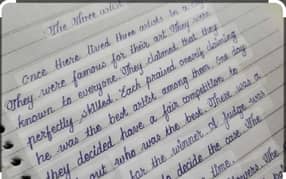 The three artist
Once there lived three artists in a
They were famous for their art. They were
known to everyone. They claimed that they
perfectly skilled. Each praised openly claiming
he was the best artist among them. One day
they decided have a fair competition to
out who was the best. There was a
for the winner. A judge was
to decide the case. The
time.
The